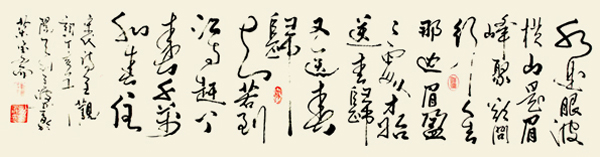 水是眼波
横山是眉
峰聚欲問
行人去
那边眉盈
々處才始
送春歸
又送君
歸
去若到
江南趕上
春千萬
和春住